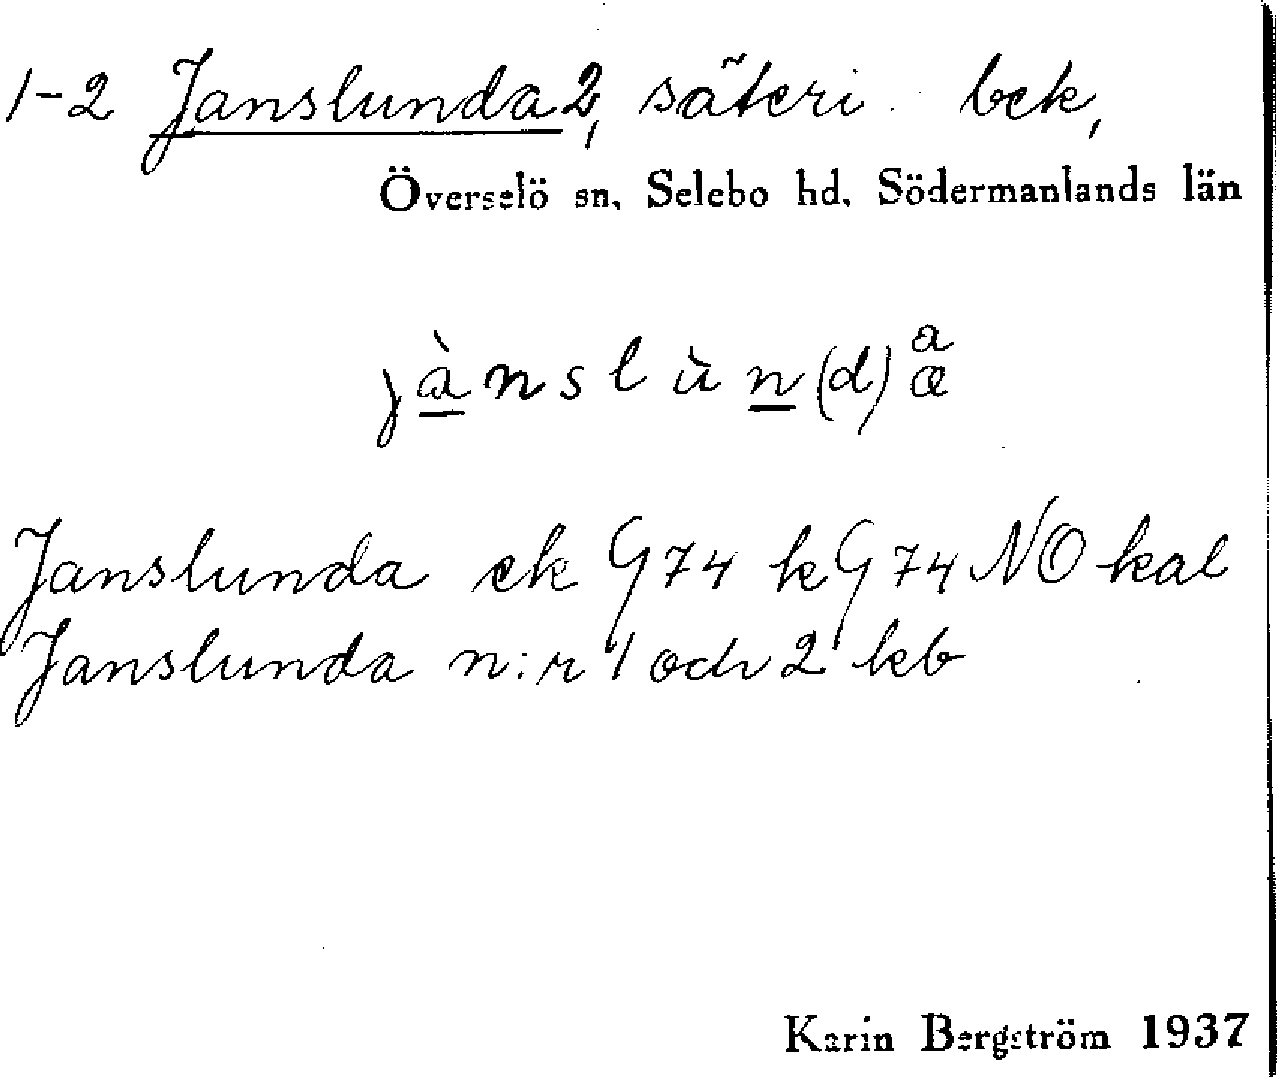 1-2 Janslunda 2, säteri bek,
Överselö sn, Selebo hd, Södermanlands län
jànslùn(d)a æ
Janslunda ek G 74 k G 74 NO kal
Janslunda n:r 1 och 2 kb
Karin Bergström 1937